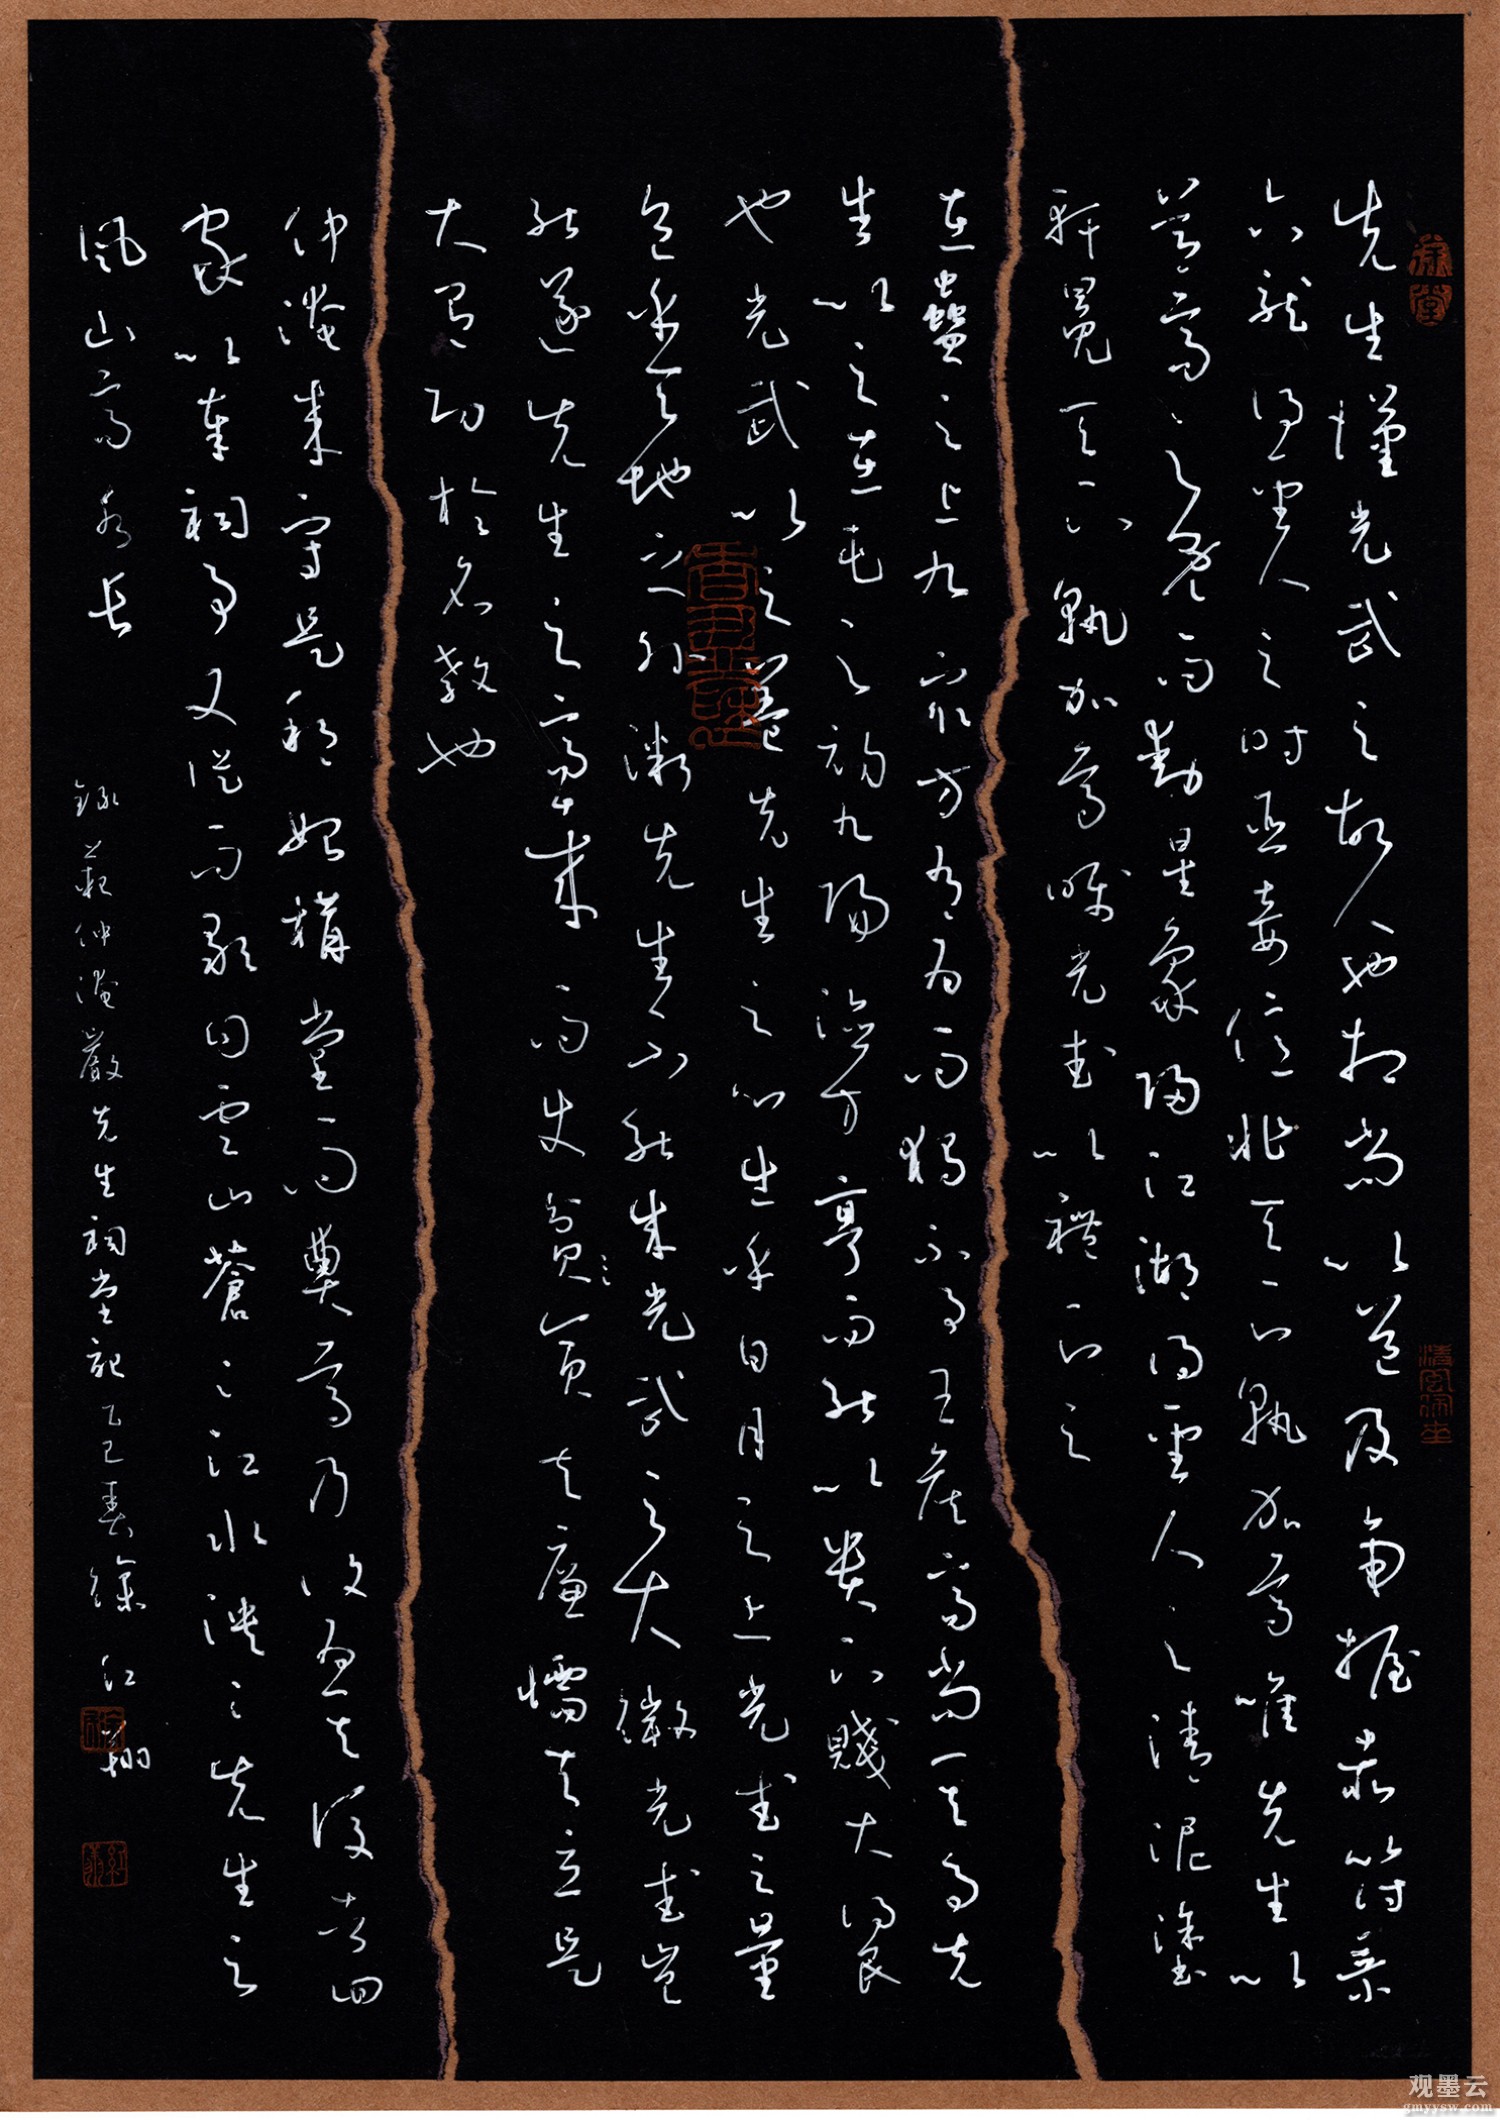 先生漢光武之故人也相尚以道及帝握赤符乘
六龍得聖人之時臣妾億兆天下孰加焉唯先生以
節高之既而動星象歸江湖得聖人之清泥塗
軒冕天下孰加焉唯光武以禮下之
在蠱之上九眾方有為而獨不事王侯高尚其事先
生以之在屯之初九陽德方亨而能以貴下賤大得民
也光武以之蓋先生之心出乎日月之上光武之量
包乎天地之外微先生不能成光武之大微光武豈
能遂先生之高哉而使貪夫廉懦夫立是
大有功於名教也
仲淹來守是邦始構堂而奠焉乃復為其後者四
家以奉祠事又從而歌曰雲山蒼〻江水泱〻先生之
風山高水長
錄范仲淹嚴先生祠堂記乙巳春徐紅翔
观墨云
gmyysw.com